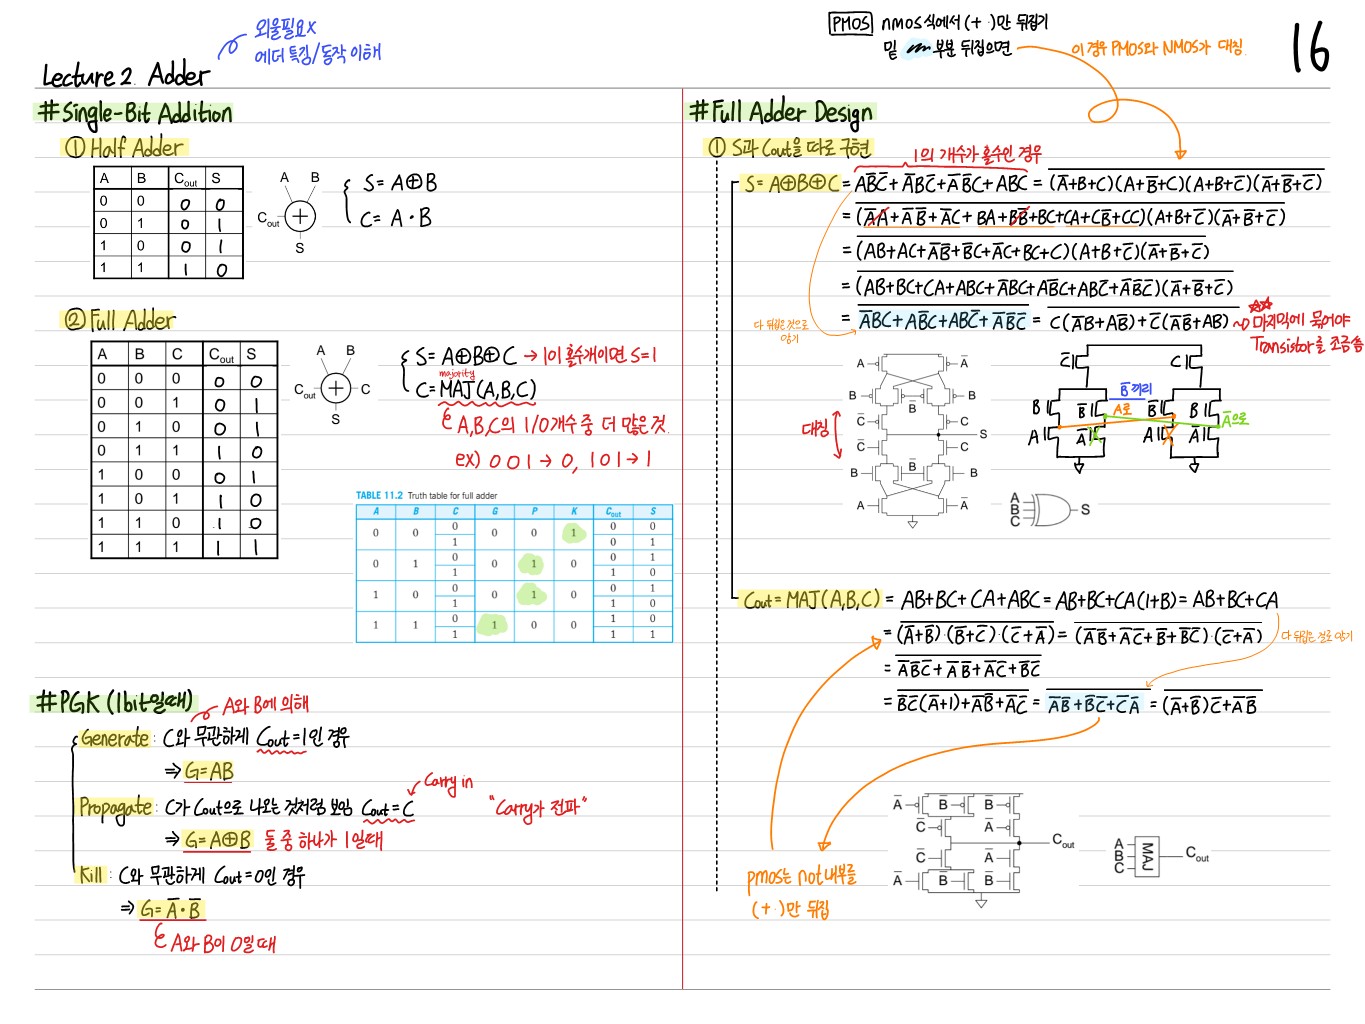 외울필요X
에더 특징/동작 이해
Lecture 2. Adder
PMOS nmos식에서 (+ ·)만 뒤집기
밑 부분 뒤집으면 이 경우 PMOS와 NMOS가 대칭
16
#Single-Bit Addition
① Half Adder
A B Cout S
0 0 0 0
0 1 0 1
1 0 0 1
1 1 1 0
A B
Cout +
S
S = A⊕B
C = A · B
② Full Adder
A B C Cout S
0 0 0 0 0
0 0 1 0 1
0 1 0 0 1
0 1 1 1 0
1 0 0 0 1
1 0 1 1 0
1 1 0 1 0
1 1 1 1 1
A B
Cout + C
S
S = A⊕B⊕C → 1이 홀수개이면 S=1
majority
C = MAJ(A,B,C)
A,B,C의 1/0개수 중 더 많은것.
ex) 0 0 1 → 0, 1 0 1 → 1
TABLE 11.2 Truth table for full adder
A B C G P K Cout S
0 0 0 0 0 1 0 0
1 0 1
0 1 0 0 1 0 0 1
1 1 0
1 0 0 0 1 0 0 1
1 1 0
1 1 0 1 0 0 1 0
1 1 1
#PGK (1bit일때)
A와 B에 의해
Generate : C와 무관하게 Cout=1인 경우
⇒ G=AB
Carry in
Propagate : C가 Cout으로 나오는 것처럼 보임 Cout=C "Carry가 전파"
⇒ G=A⊕B 둘 중 하나가 1일때
Kill : C와 무관하게 Cout=0인 경우
⇒ G=A̅·B̅
A와 B이 0일때
#Full Adder Design
① S과 Cout을 따로 구현
1의 개수가 홀수인 경우
S=A⊕B⊕C = AB̅C̅+A̅BC̅+A̅B̅C+ABC = (A̅+B+C)(A+B̅+C)(A+B+C̅)(A̅+B̅+C̅)
= (A̅A+A̅B̅+A̅C+BA+BB̅+BC+CA+CB̅+CC)(A+B+C̅)(A̅+B̅+C̅)
= (AB+AC+A̅B̅+B̅C+A̅C+BC+C)(A+B+C̅)(A̅+B̅+C̅)
= (AB+BC+CA+ABC+A̅BC+AB̅C+ABC̅+A̅B̅C̅)(A̅+B̅+C̅)
다 뒤집은것으로
암기
= A̅BC+AB̅C+ABC̅+A̅B̅C̅ = C(A̅B+AB̅)+C̅(A̅B̅+AB) ~○ 마지막에 묶어야
Transistor를 조금씀
A A̅
B B̅ B
C̅ C
대칭 S
C̅ C
B B̅ B
A A̅
C̅ C
B̅끼리
B B̅ A로 B̅ B A̅으로
A A̅ A A̅
A
B
C
S
Cout = MAJ(A,B,C) = AB+BC+CA+ABC = AB+BC+CA(1+B) = AB+BC+CA
= (A̅+B̅)·(B̅+C̅)·(C̅+A̅) = (A̅B̅+A̅C̅+B̅+B̅C̅)·(C̅+A̅) 다 뒤집는 걸로 암기
= A̅B̅C̅+A̅B̅+A̅C̅+B̅C̅
= B̅C̅(A̅+1)+A̅B̅+A̅C̅ = A̅B̅+B̅C̅+C̅A̅ = (A̅+B̅)C̅+A̅B̅
A̅ B̅ B̅
C̅ A̅
Cout
C̅ A̅
A̅ B̅ B̅
A
B
C
MAJ
Cout
pmos는 not내부를
(+ ·)만 뒤집